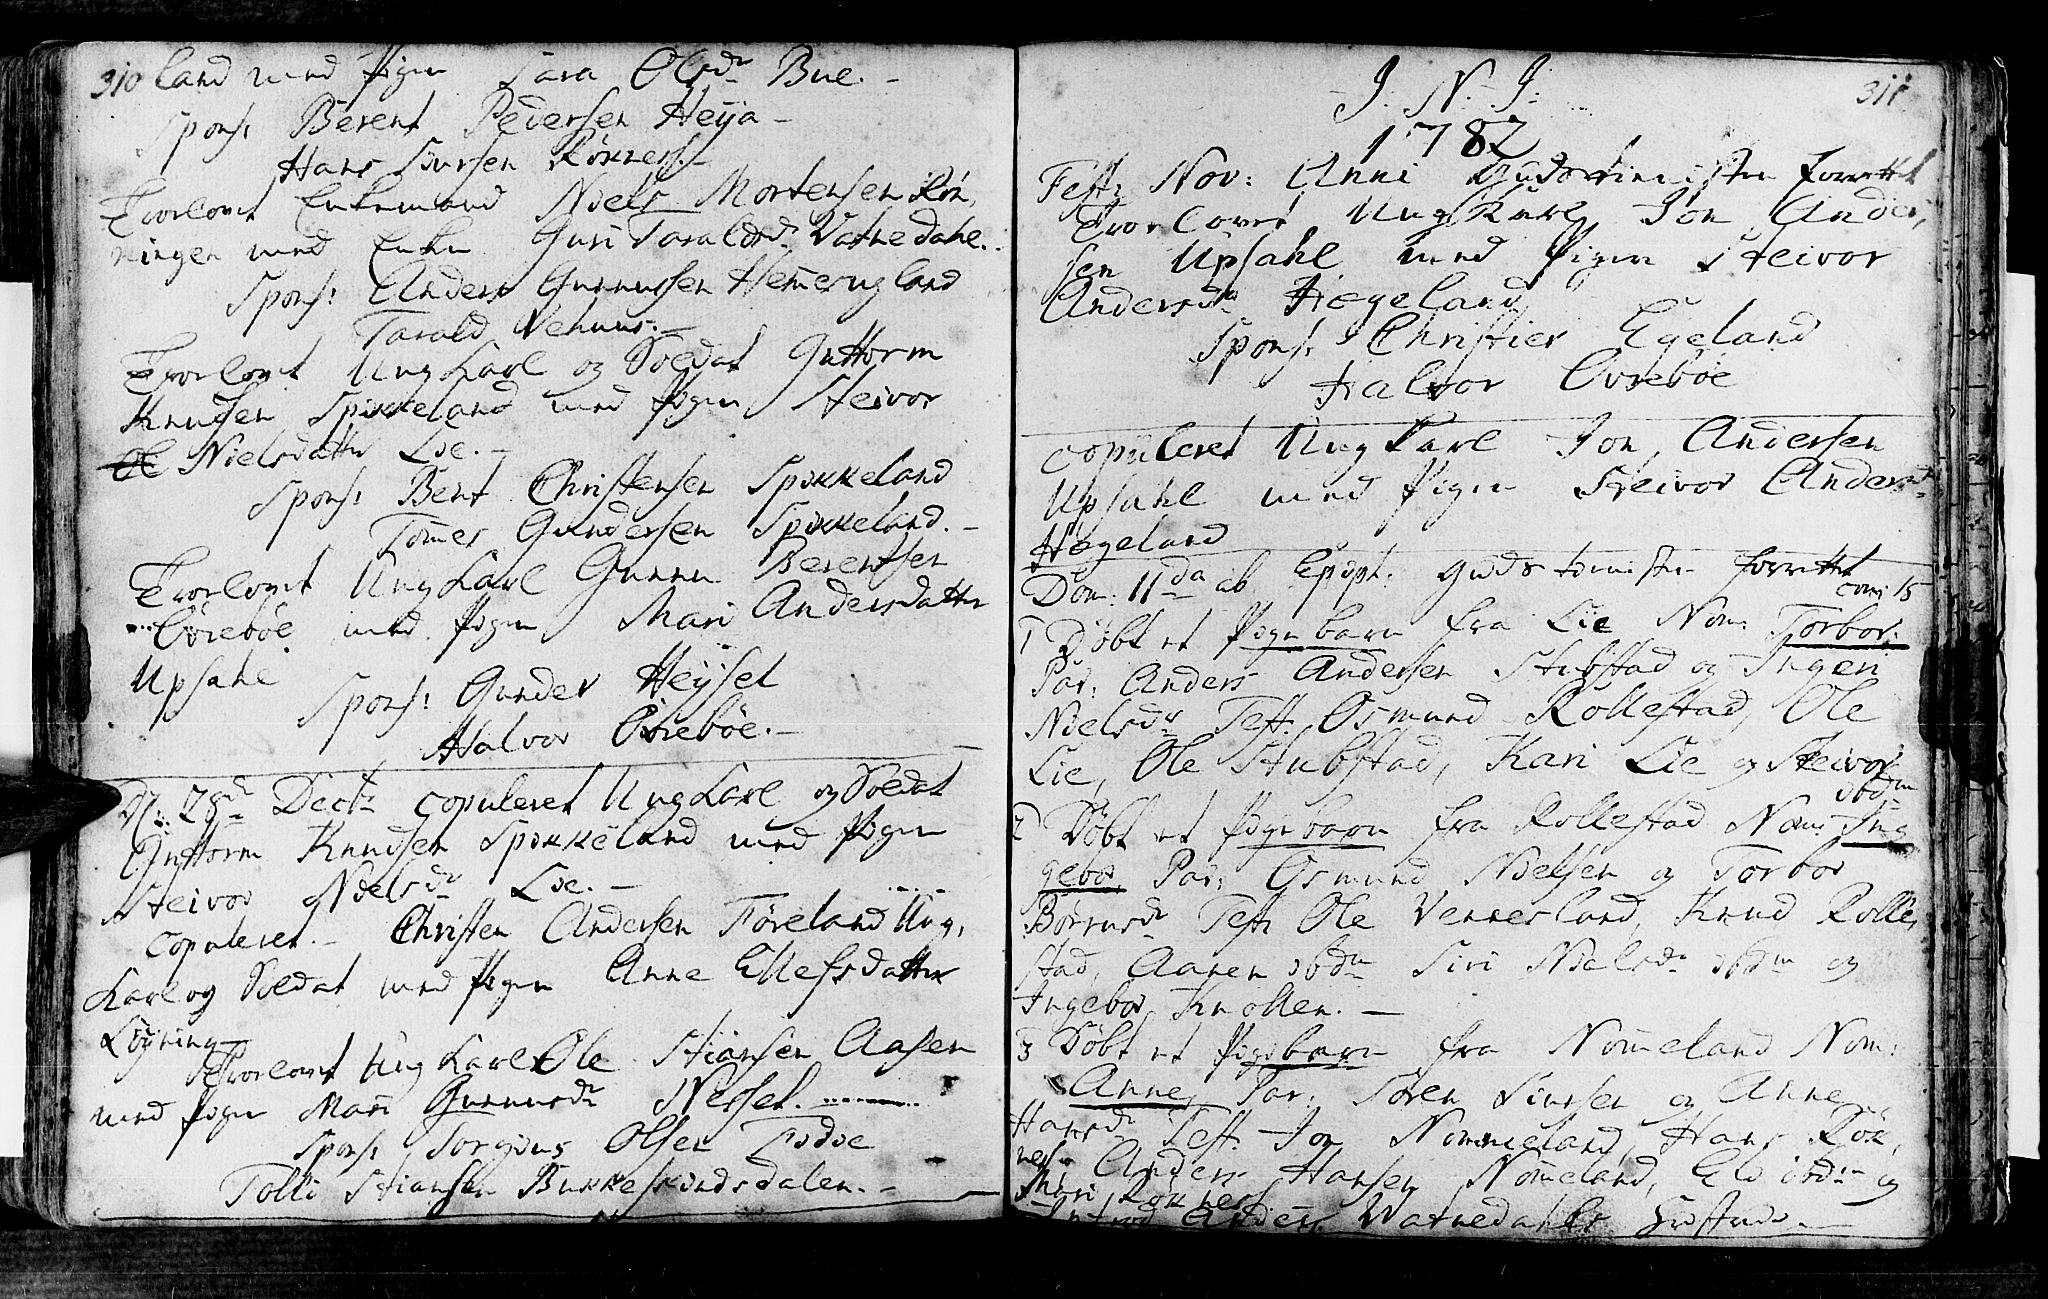 310 land med Pigen Sara Olsdr Bue. -
Spons: Berent Pedersen Heÿa -
Hans Siursen Röxnes. -
Trorlovet Enkemand Niels Mortensen Röx,
ningen med Enken Guri Taraldsdr Vatnedahl. -
Spons: Anders Gunnufsen Hemesugland
Tarald Vehuus. -
Trorlovet Ung Karl og Soldat Guttorm
Knudsen Spikkeland med Pigen Steivor
Nielsdatter Lie. -
Spons: Bent Christensen Spikkeland
Tomes Gundersen Spikkeland. -
Trorlovet Ung Karl Gunnu Berentsen
Övreböe med Pigen Mari Andersdatter
Upsahl
Spons: Gunder Heÿsel
Halvor Övreböe. -
D: 28de Decbr copuleret Ung Karl og Soldat
Guttorm Knudsen Spikkeland med Pigen
Steivor Nielsdr Lie. -
Copuleret. - Christen Andersen Föreland Ung,
Karl og Soldat med Pigen Anne Ellefsdatter
Löÿning
Trorlovet Ung Karl Ole Stiansen Aasen
med Pigen Mari Gunnusdr Nessel.
Spons: Torgius Olsen
Tolli Stiansen Bukkesindsdalen. -
311
J. N. J:
1782
Fest: Nov: Anni Gudstienisten forrettet
Trorlovet Ung Karl Jon Ander,
sen Upsahl med Pigen Steivor
Andersdr Hægeland
Spons: Christier Egeland
Halvor Övreböe
copuleret Ung Karl Jon Andersen
Upsahl med Pigen Steivor Andersdr
Hægeland
Dom: 11da ab Epiph: Gudstienisten forrettet
com: 15
1 Döbt et Pigebarn fra Lie Nom: Torbor.
Par: Anders Andersen Stubstad og Ingeri
Nielsdr Test: Osmund Rollestad, Ole
Lie, Ole Stubstad, Kari Lie og Steivor
ibdm
2 Döbt et Pigebarn fra Rollestad Nom: Ing
gebor Par: Osmund Nielsen og Torbor
Börrusdr Test: Ole Vennesland, Knud Rolle,
stad, Aanen ibdm Siri Nielsdr ibdm og
Ingebor Knollen. -
3 Döbt et Pigebarn fra Nomeland Nom:
Anne, Par: Sören Siursen og Anne
Hansdr Test: Jon Nommeland, Hans Röx,
nes. Anders Hansen Nomeland, Eli ibdm og
Mari Röxnes
Anders Watnedahls Hustrue. -